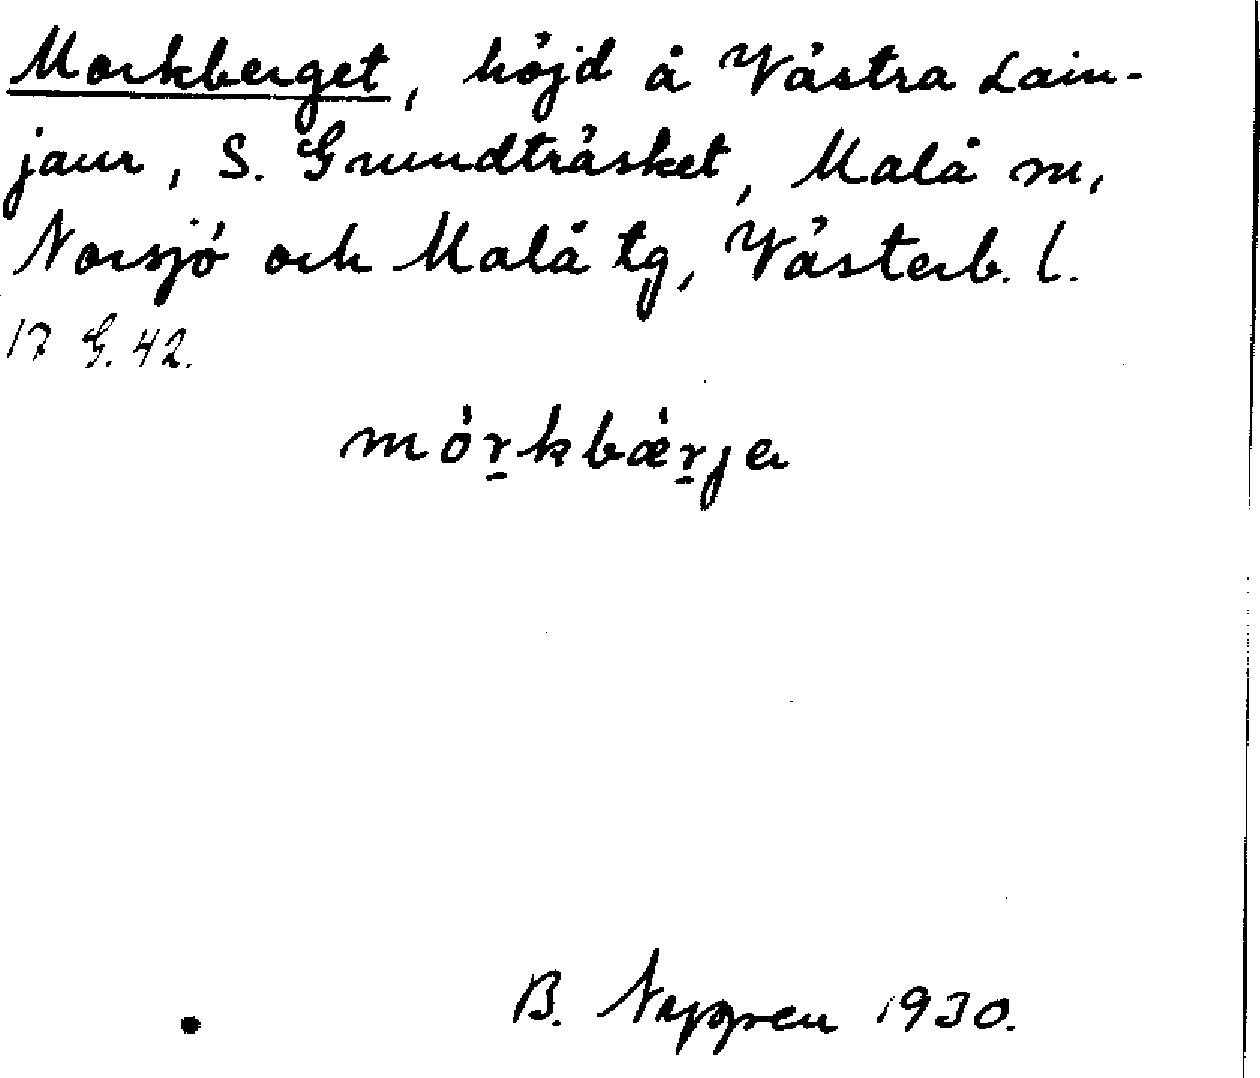 Morkberget, höjd å Västra Lain-
jaur, S. Grundträsket, Malå sn,
Norsjö och Malå tg, Västerb. l.
17 G. 42.
mór̠kbǽr̠jeɩ
B. Nappren 1930.